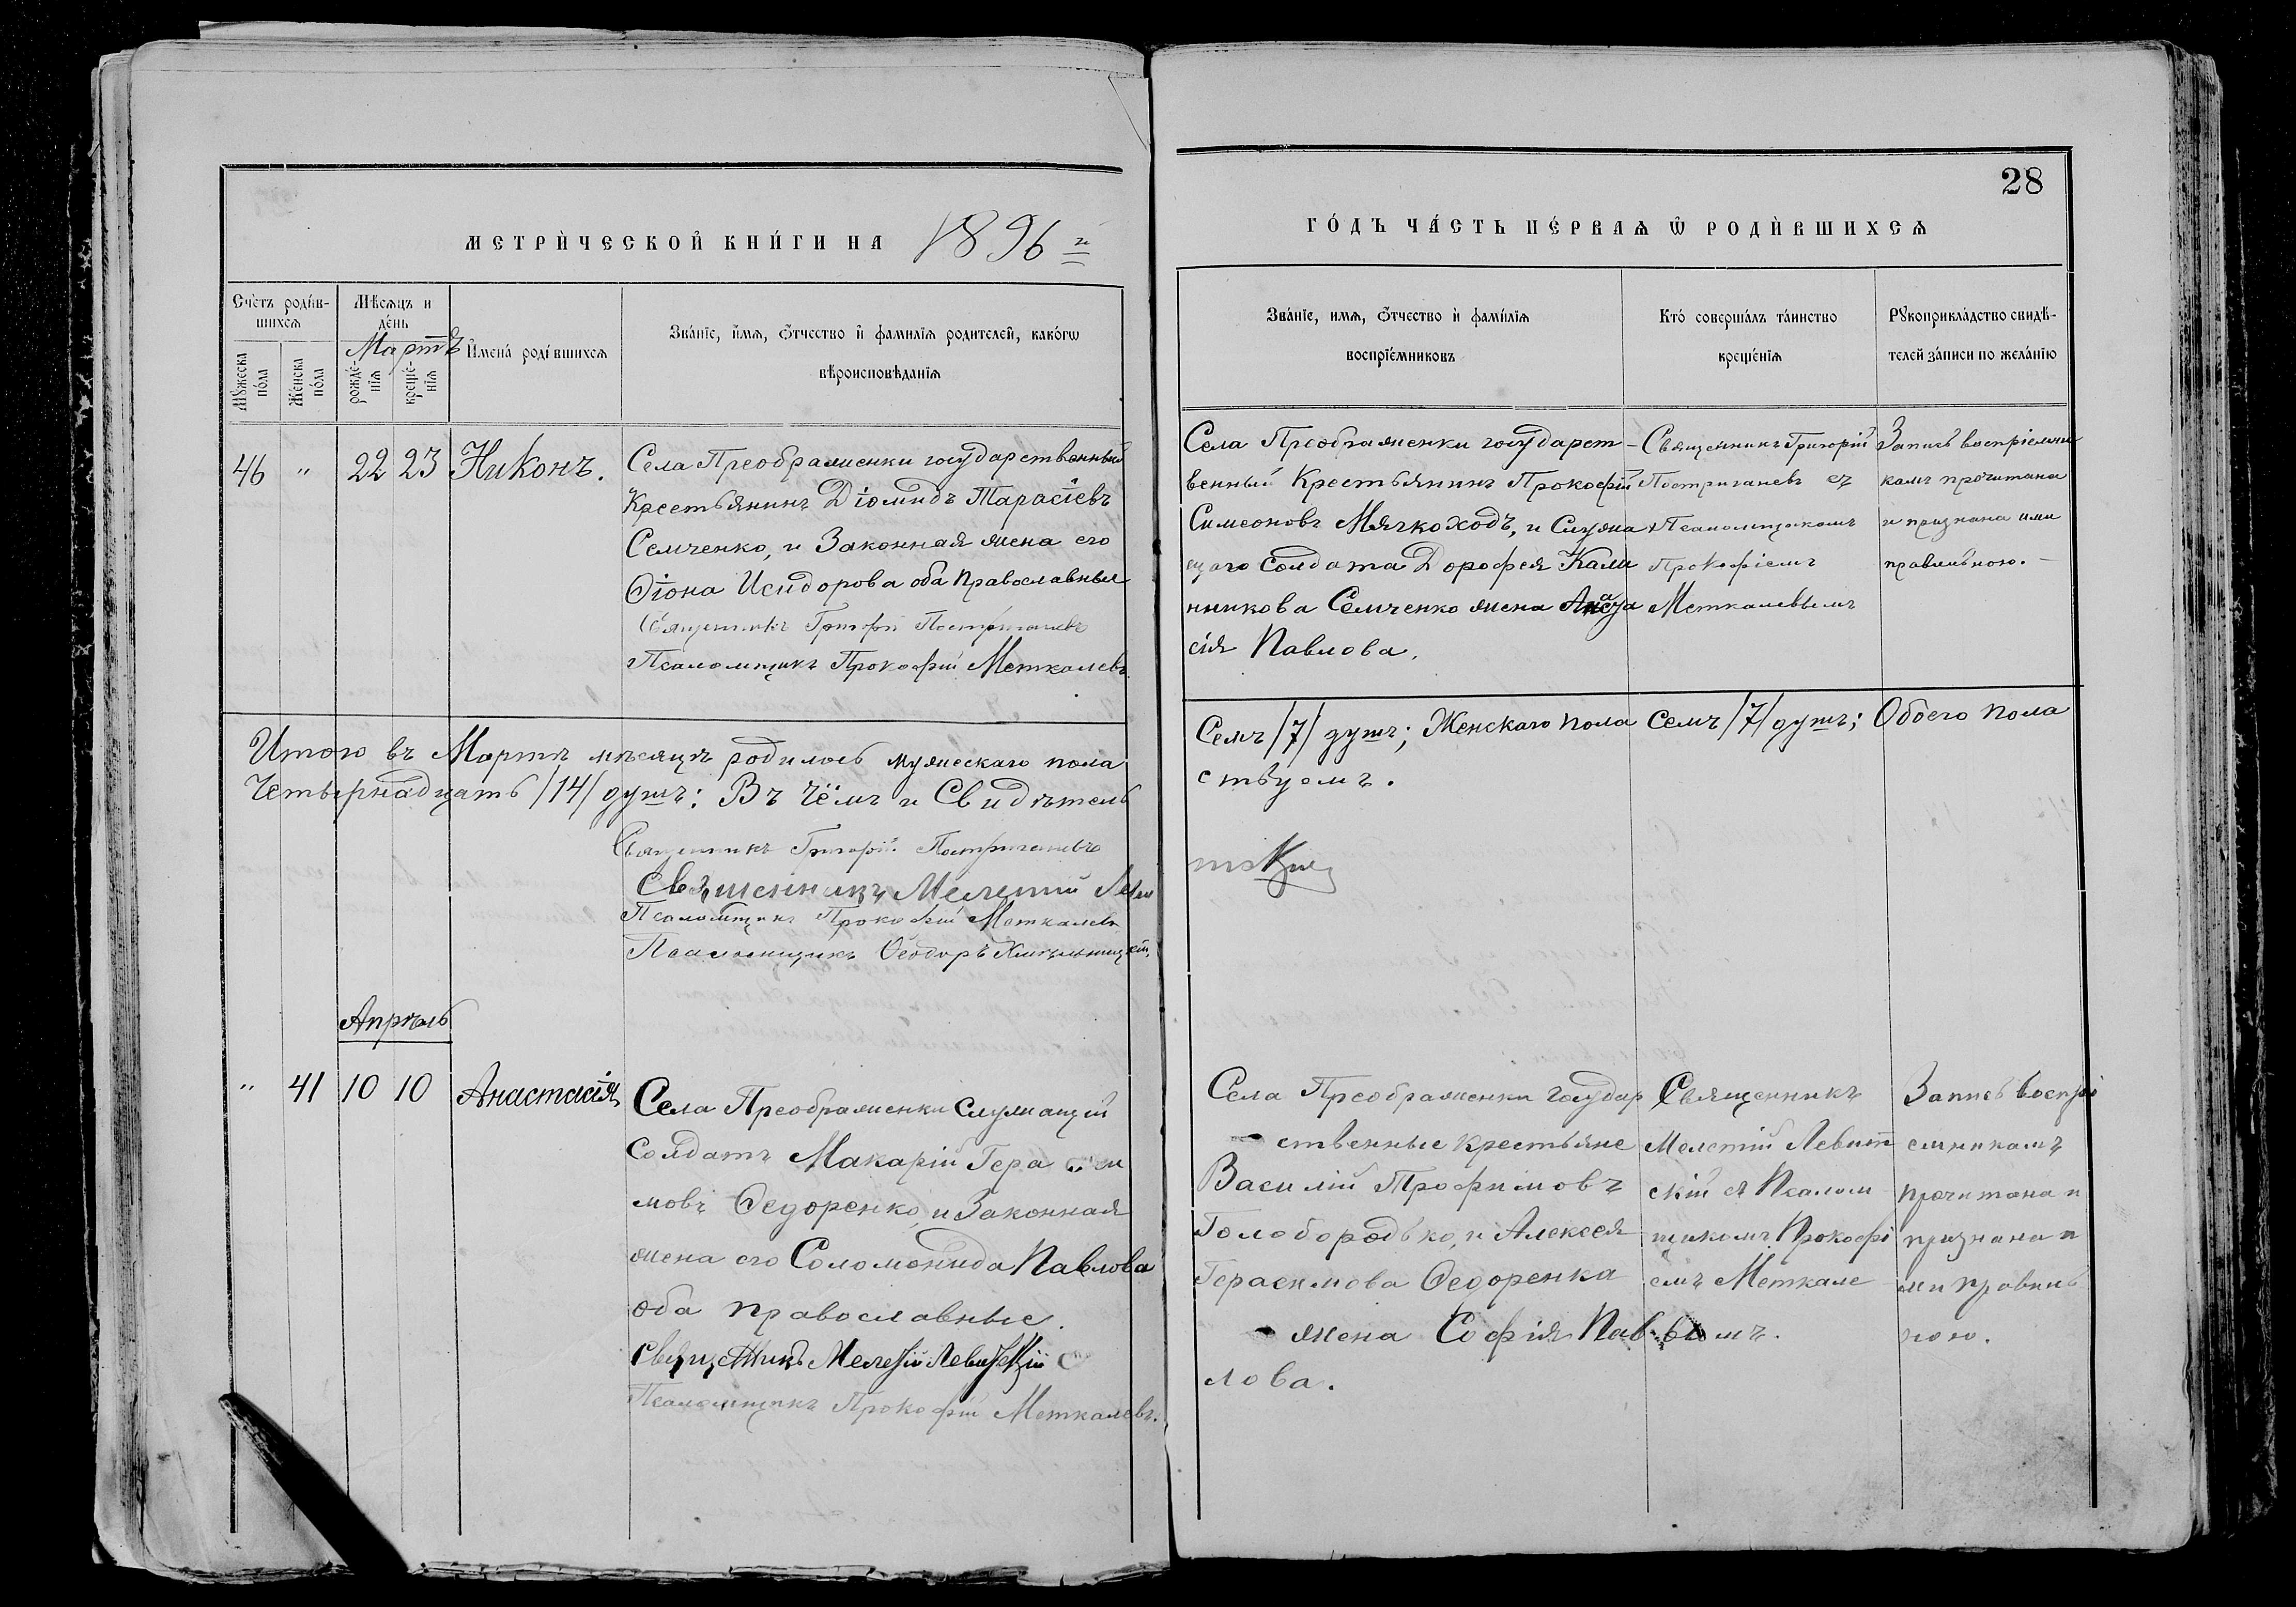 28
МЕТРИ́ЧЕСКОЙ КНИ́ГИ НА 1896 й
ГО́ДЪ ЧА́СТЬ ПЕ́РВАѦ Ѡ РОДИ́ВШИХСѦ
Сче́тъ роди́в-
шихсѧ
Мѣ́сѧцъ и
де́нь
Мартъ
Мꙋ́жеска
по́ла
Же́нска
по́ла
рожде́-
нїѧ
креще́-
нїѧ
И҆мена̀ роди́вшихсѧ
Зва́нїе, и҆́мѧ, ѻ҆́тчество и҆ фами́лїѧ роди́телей, како́гѡ
вѣроисповѣ́данїѧ
Зва́нїе, имѧ, ѻ҆́тчество и҆ фами́лїѧ
воспрїе́мниковъ
Кто́ соверша́лъ та́инство
креще́нїѧ
Рꙋкоприкла́дство свидѣ́-
телей за́писи по жела́нїю
46 " 22 23 Никонъ.
Села Преображенки государственный
Крестьянинъ Діомидъ Тарасіевъ
Семченко, и Законная жена его
Ѳіона Исидорова оба Православные
Священникъ Григорій Постригачевъ
Псаломщикъ Прокофій Меткалевъ.
Села Преображенки государст-
венный Крестьянинъ Прокофій
Симеоновъ Мягкоходъ, и Служа
щаго Солдата Дорофея Кали
нникова Семченко жена
сія Павлова.
Священникъ Григорій
Постригачевъ съ
Псаломщикомъ
Прокофіемъ
Меткалевымъ
Запись воспріемни
камъ прочитана
и признана ими
правильною.—
Итого въ Мартѣ мѣсяцѣ родилось мужескаго пола
Семъ /7/ душъ; Женскаго пола Семъ /7/ душъ; Обоего пола
Четырнадцать /14/ душъ: Въ чёмъ и Свидѣтель
ствуемъ.
Священникъ Григорій Постригачевъ
Священникъ Мелетій Леви
тскій
Псаломщикъ Прокофій Меткалевъ
Псаломщикъ Ѳеодоръ Хмѣльницкій.
Апрѣль
" 41 10 10 Анастасія
Села Преображенки Служащій
Солдатъ Макарій Гераси
мовъ Ѳедоренко, и Законная
жена его Соломонида Павлова
оба православные.
Священникъ Мелетій Левитскій
Псаломщикъ Прокофій Меткалевъ.
Села Преображенки Государ
ственные крестьяне
Василій Трофимовъ
Голобородько, и Алексея
Герасимова Ѳедоренка
жена Софія Пав
лова.
Священникъ
Мелетій Левит
скій съ Псалом
щикомъ Прокофі
емъ Меткале
вымъ.
Запись воспрі
емникамъ
прочитана и
признана и
ми правиль
ною.